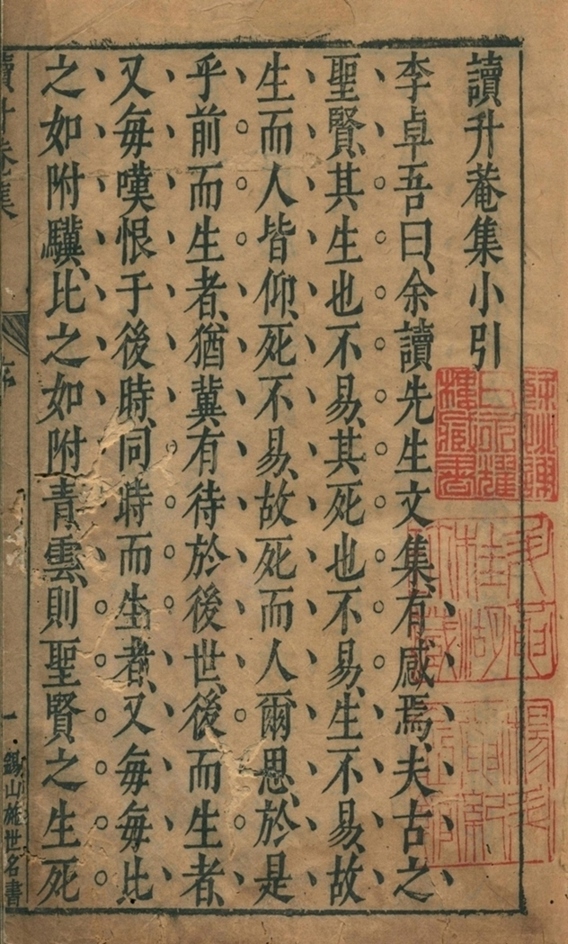 讀升菴集小引
李卓吾曰、余讀先生文集、有感焉、夫古之
聖賢、其生也不易、其死也不易、生不易、故
生而人皆仰、死不易、故死而人爾思、於是
乎前而生者、猶冀有待於後世、後而生者、
又每嘆恨于後時、同時而生者、又每每比
之如附驥、比之如附青雲、則聖賢之生死
讀升菴集
序
一
錫山施世名書